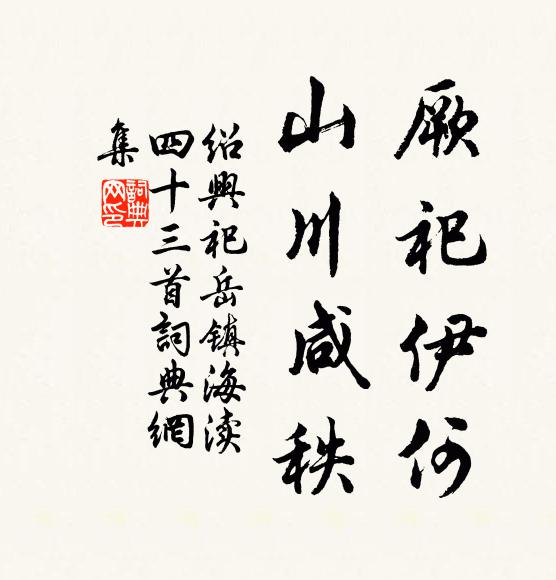 厥祀伊何
山川咸秩
绍興祀岳镇海渎
四十三首詞典網
集
詞典网印